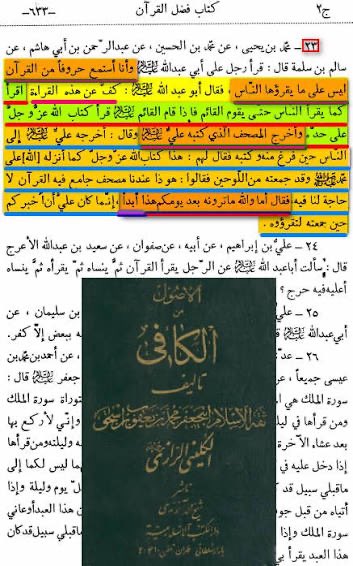 ج٢ كتاب فضل القرآن -٦٣٣-
٢٣ - محمّد بن يحيى ، عن محمّد بن الحسين ، عن عبدالرّحمن بن أبي هاشم ، عن
سالم بن سلمة قال : قرأ رجل على أبي عبدالله عليه السلام وأنا أستمع حروفاً من القرآن
ليس على ما يقرؤها النّاس ، فقال أبو عبدالله عليه السلام : كفّ عن هذه القراءة اقرأ
كما يقرأ النّاس حتّى يقوم القائم فإذا قام القائم عليه السلام قرأ كتاب الله عزّ وجلّ
على حدّه وأخرج المصحف الذي كتبه عليّ عليه السلام وقال : أخرجه عليّ عليه السلام إلى
الناس حين فرغ منه وكتبه فقال لهم : هذا كتاب الله عزّ وجلّ كما أنزله [الله] على
محمّد صلى الله عليه وآله وقد جمعته من اللّوحين فقالوا : هوذا عندنا مصحف جامع فيه القرآن لا
حاجة لنا فيه فقال أما والله ماترونه بعد يومكم هذا أبداً ، إنّما كان عليّ أن اُخبركم
حين جمعته لتقرؤوه .
٢٤ - عليّ بن إبراهيم ، عن أبيه ، عن صفوان ، عن سعيد بن عبدالله الأعرج
قال : سألت أباعبدالله عليه السلام عن الرّجل يقرأ القرآن ثمّ ينساه ثمّ يقرأه ثمّ ينساه
أعليه فيه حرج ؟
٢٥ - عليّ بن سليمان ، عن
أبي عبدالله ه ببعض إلّا كفر .
٢٦ - عد ، عن أحمد بن محمّد بن
عيسى جميعاً ، عن جعفر عليه السلام قال :
سورة الملك هي توراة سورة الملك
ومن قرأها في ليل وإنّي لأركع بها
بعد عشاء الآخرة ه وليلته ومن قرأها
إذا دخل عليه في هما ليس لكما إلى
ماقبلي سبيل قد ك لّ يوم وليلة وإذا
أتياه من قبل جوف هذا العبد أوعاني
سورة الملك وإذا ماقبلي سبيل قد كان
هذا العبد يقرأ بي
الاصول
من
الكافي
تأليف
ثقة الاسلام ابي جعفر محمد بن يعقوب بن اسحق
الكليني الرازي
ناشر
دار الكتب الاسلامية